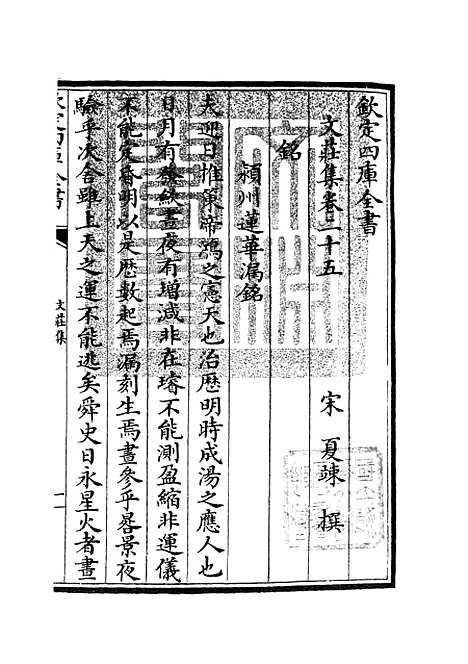 欽定四庫全書
文莊集卷二十五
宋 夏竦 撰
銘
潁州蓮華漏銘
夫迎日推策帝鴻之憲天也治歴明時成湯之應人也
日月有繇歛晝夜有增減非在璿不能測盈縮非運儀
不能定昏明以是歴數起焉漏刻生焉晝參乎晷景夜
驗乎次舍雖上天之運不能逃矣舜史日永星火者晝
欽定四庫全書
文莊集
一